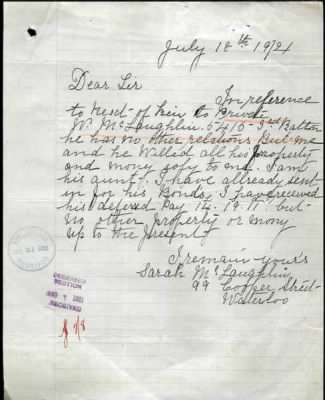 July 18th 1921
Dear Sir
In reference
to Next of Kin to Private
W. McLaughlin. 5416 3rd Battn
he has no other relations But me
and he Willed all his property
and money soly to me. I am
his aunt. I have allready sent
in for his Bonds, I have received
his deferred Pay 14. 19. 11 but
no other Property or money
up to the Present
I remain yours
Sarah McLaughlin
99 Cooper Street
Waterloo
DECEASED
SECTION
1921
RECEIVED